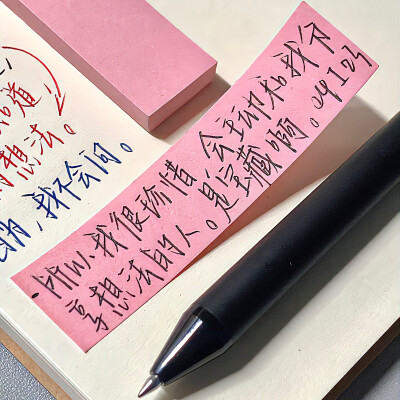 知道
想法。
的，我不会问。
·所以，我很珍惜 会主动和我分
享想法的人。是宝藏啊。041024